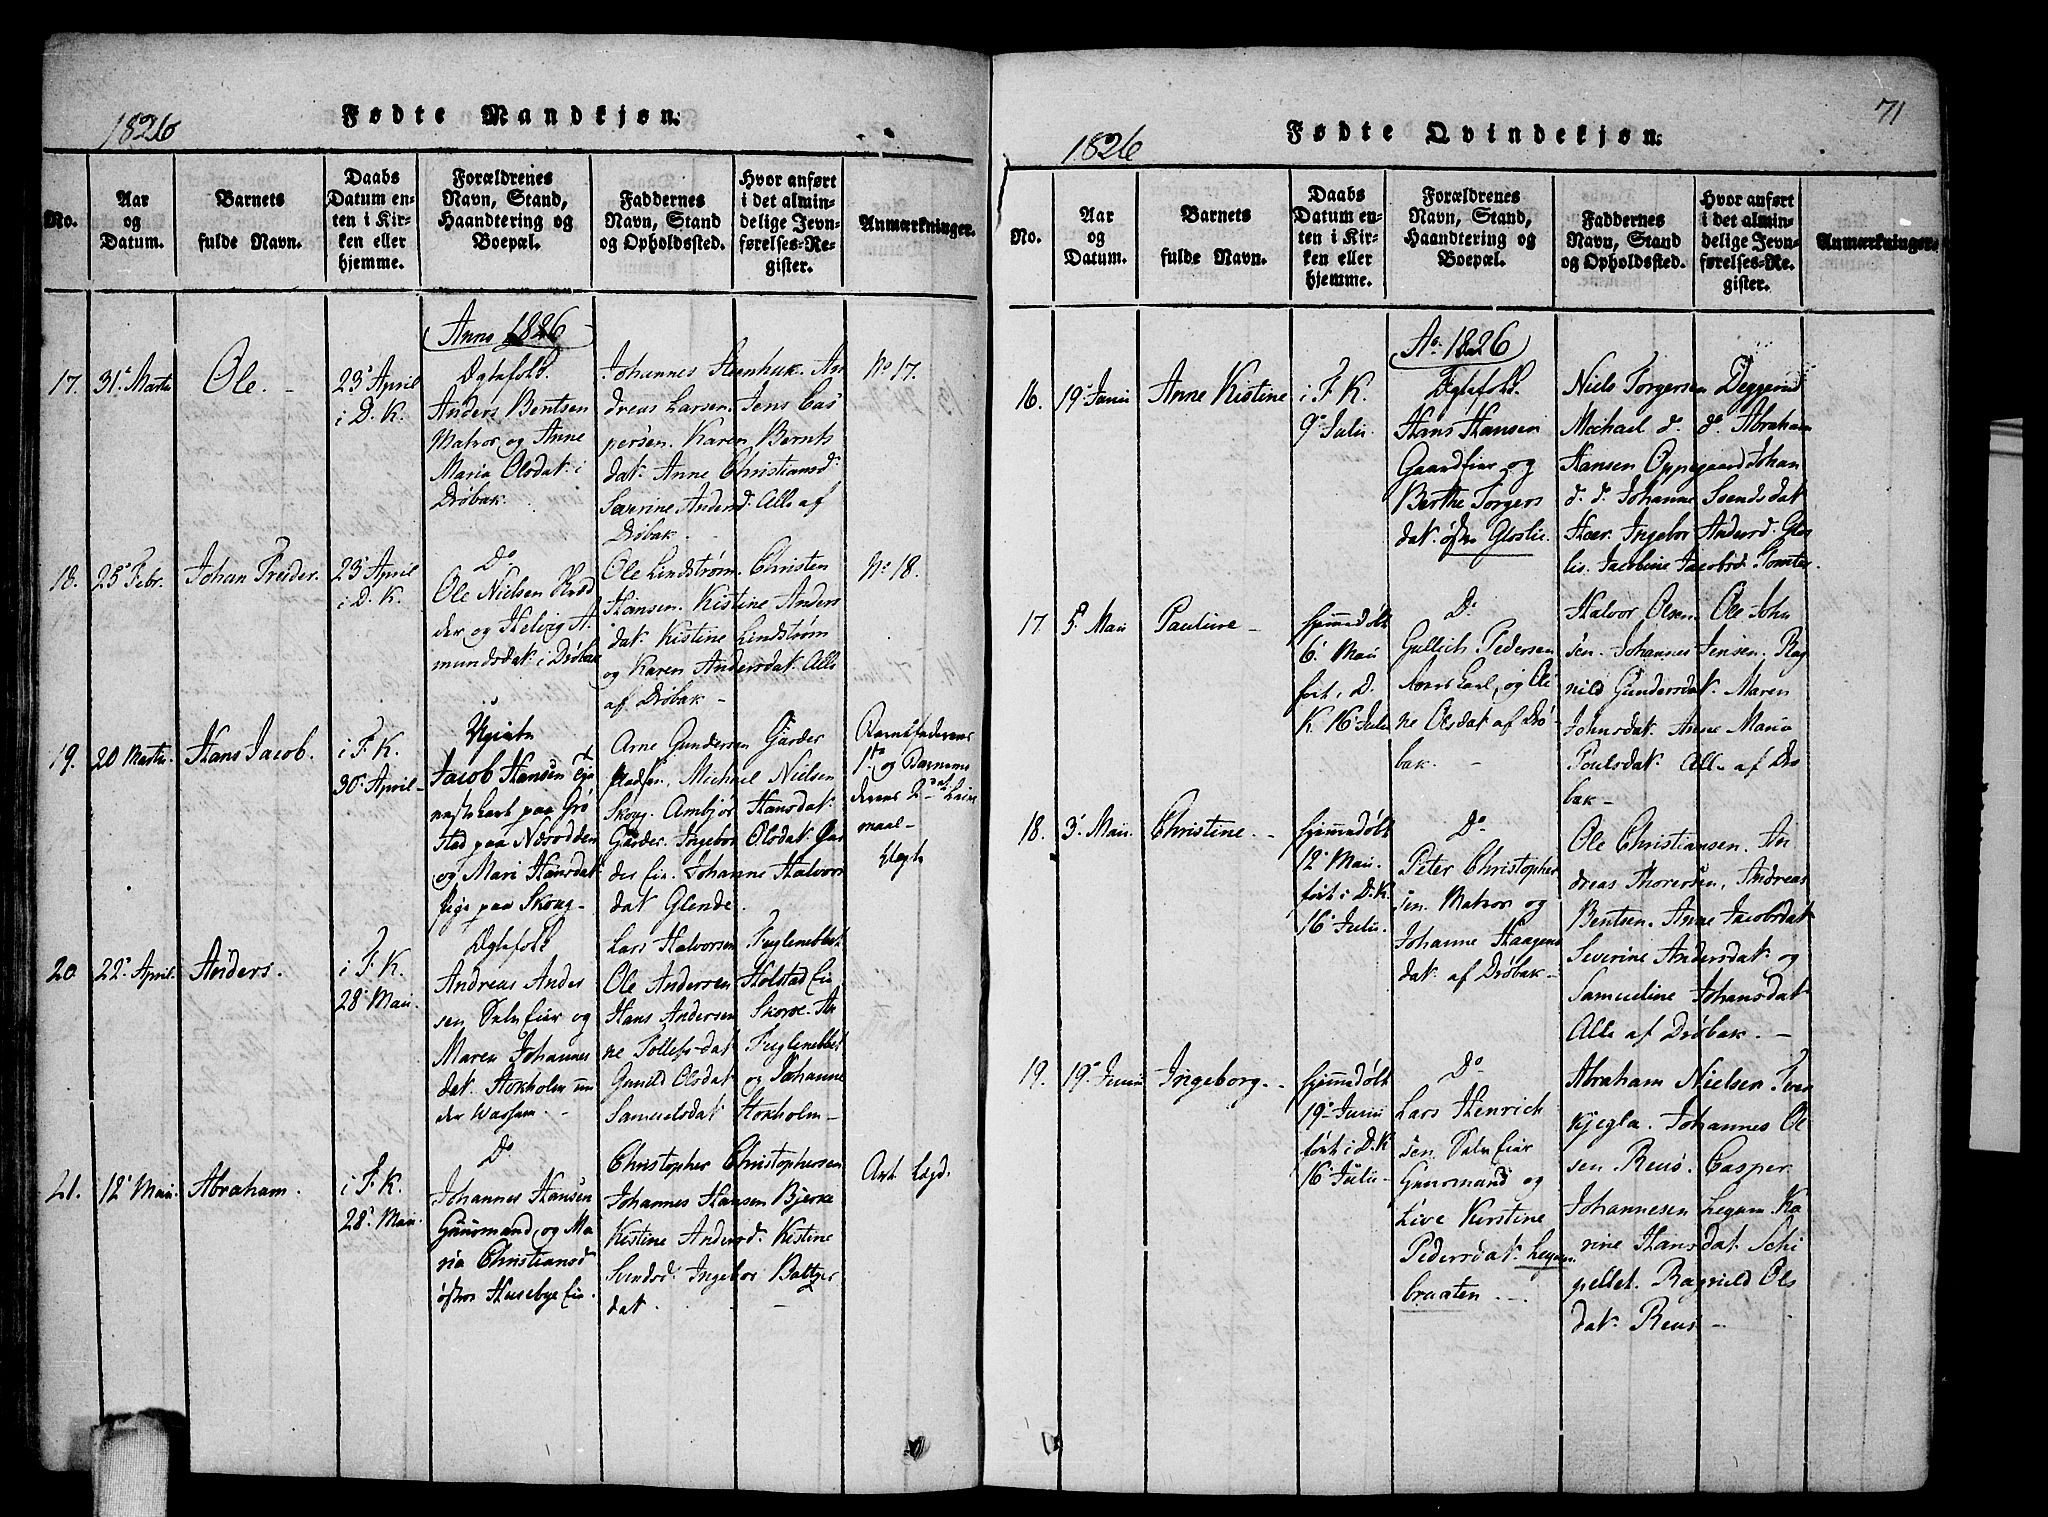 1826
Fødte Mandkjøn.
No.
Aar
og
Datum.
Barnets
fulde Navn.
Daabs
Datum en-
ten i Kir-
ken eller
hjemme.
Forældrenes
Navn, Stand,
Haandtering og
Boepæl.
Faddernes
Navn, Stand
og Opholdssted.
Hvor anført
i det almin-
delige Jevn-
førelses-Re-
gister.
Anmærkninger.
Anno 1826
17.
31. Martii
Ole.
23 April
i D. K.
Ægtefolk.
Anders Bentsen
Matros og Anne
Maria Olsdat: i
Drøbak.
Johannes Steenhuk. An
dreas Larsen. Jens Cas
persen. Karen Bernts
dat: Anne Christiansd:
Severine Andersd: Alle af
Drøbak.
No 17.
18.
25 Febr.
Johan Freder.
23 April
i D. K.
Do
Ole Nielsen
der og Helvig A
mundsdat: i Drøbak
Ole Lindstrøm. Christen
Hansen. Kistine Anders
dat: Kistine Lindstrøm
og Karen Andersdat: Alle
af Drøbak
No 18.
19.
20 Martii.
Hans Jacob.
i F. K.
30 April
Jacob Hansen
paa
stad paa Næsodden
og Mari Hansdat
Pige paa Skoug
Arne Gundersen Gjarder
pladsen, Michael Nielsen
Skoug. Ambjør Hansdat:
Garder. Ingebor Olsdat: Gar
der Eie. Johanne Halvors
dat: Glende.
Barnefaderens
1ste og Barnemo
derens 2den Leier
maal
20
22 April.
Anders.
i F. K.
28 Maii.
Ægtefolk
Andreas Ander
sen Selveier og
Maren Johannes
dat: Stokholm un
der
Lars Halvorsen Fuglenebbet
Ole Andersen Holstad Eie
Hans Andersen Skorve. An
ne Tollefsdat: Fuglenebbet
Gunild Olsdat: og Johanne
Samuelsdat: Stokholm
21.
12 Maii.
Abraham.
i F. K.
28 Maii.
Do
Johannes Hansen
Huusmand og Ma
ria Christiansd
østre Husebye Eie.
Christopher Christophersen
Johannes Hansen Bjerke
Kistine Andersd: Kistine
Svendsd: Ingebor Baltzer
dat.
71
1826
Fødte Qvindekjøn.
No.
Aar
og
Datum.
Barnets
fulde Navn.
Daabs
Datum en-
ten i Kir-
ken eller
hjemme.
Forældrenes
Navn, Stand,
Haandtering og
Boepæl.
Faddernes
Navn, Stand
og Opholdssted.
Hvor anført
i det almin-
delige Jevn-
førelses-Re-
gister.
Anmærkninger.
Ao. 1826
16.
19 Junii
Anne Kistine
i F. K.
9 Julii.
Ægtefolk.
Hans Hansen
Gaardeier og
Berthe Torgers
dat: østre Gloslie.
Niels Torgersen Deggerud
Michael do. do. Abraham
Hansen Oppegaard Johan
d. d. Johanne Svendsdat:
Haer. Ingebor Andersd: Glos
lie. Jacobine Jacobsd: Tomter.
17.
5 Maii
Pauline
hjemmedøbt
6 Maii
fort i D.
K. 16 Julii
Do
Gullich Pedersen
og Oli
ne Olsdat: af Drø
bak.
Halvor Olsen. Ole John
sen. Johannes Jensen. Rag
nild Gundersdat: Maren
Johnsdat: Anne Maria
Poulsdat: Alle af Drø
bak
18.
3 Maii.
Christine.
hjemmedøbt
12 Maii
fort i D. K.
16 Julii.
Do
Peter Christopher
sen. Matros og
Johanne Haagens
dat: af Drøbak
Ole Christiansen. An
dreas Thorersen, Andreas
Bentsen. Anne Jacobsdat:
Severine Andersdat: og
Samueline Johansdat:
Alle af Drøbak.
19.
19 Junii
Ingeborg.
hjemmedøbt
19 Junii
fort i D. K
16 Julii
Do
Lars Henrich
sen. Selveier
Huusmand og
Live Kerstine
Pedersdat: Legum
braaten.
Abraham Nielsen
Kjegla. Johannes Ol
sen Reus. Casper
Johannesen Legum Ka
rine Hansdat: Schi
pellet. Ragnild Ols
dat: Reus